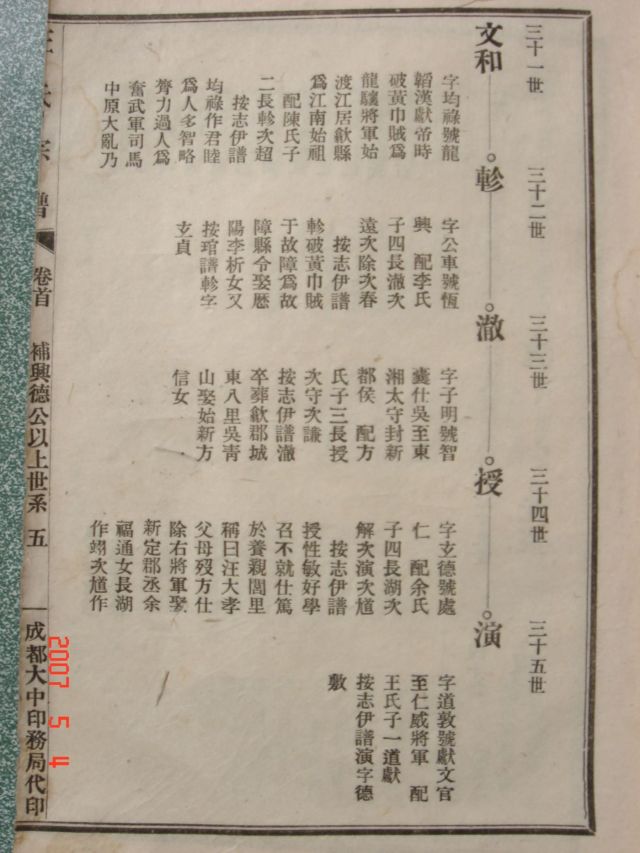 三十一世
三十二世
三十三世
三十四世
三十五世
文和
軫
澈
授
演
字均祿號龍
韜漢獻帝時
破黃巾賊爲
龍驤將軍始
渡江居歙縣
爲江南始祖
配陳氏子
二長軫次超
按志伊譜
均祿作君睦
爲人多智略
膂力過人爲
奮武軍司馬
中原大亂乃
字公車號恆
興 配李氏
子四長澈次
遠次除次春
按志伊譜
軫破黃巾賊
于故障爲故
障縣令娶歷
陽李析女又
按琯譜軫字
玄貞
字子明號智
囊仕吳至東
湘太守封新
都侯 配方
氏子三長授
次守次謙
按志伊譜澈
卒葬歙郡城
東八里吳青
山娶始新方
信女
字玄德號處
仁 配余氏
子四長湖次
解次演次尵
按志伊譜
授性敏好學
召不就仕篤
於養親閭里
稱曰汪大孝
父母歿方仕
除右將軍娶
新定郡丞余
福通女長湖
作翊次尵作
字道敦號獻文官
至仁威將軍 配
王氏子一道獻
按志伊譜演字德
敷
氏宗譜
卷首
補興德公以上世系 五
成都大中印務局代印
2007 5 4